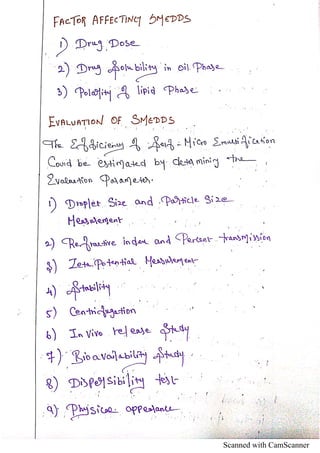 FACTOR AFFECTING SMEDDS
1) Drug Dose
2) Drug Solubility in oil Phase
3) Polarity of lipid Phase
EVALUATION OF SMEDDS
The Efficiency of Self-Micro Emulsification
Could be estimated by determining the
Evaluation Parameter.
1) Droplet Size and Particle Size
Measurement
2) Refractive index and Percent transmission
3) Zeta Potential Measurement
4) Stability
5) Centrifugation
6) In Vivo release Study
7) Bioavailability Study
8) Dispersibility test
9) Physical appearance
Scanned with CamScanner